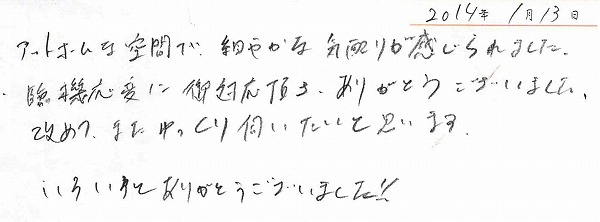 2014年 1月13日
アットホームな空間で、細やかな気配りが感じられました。
臨機応変に御対応頂き、ありがとうございました。
改めて、またゆっくり伺いたいと思います。
いろいろとありがとうございました!!